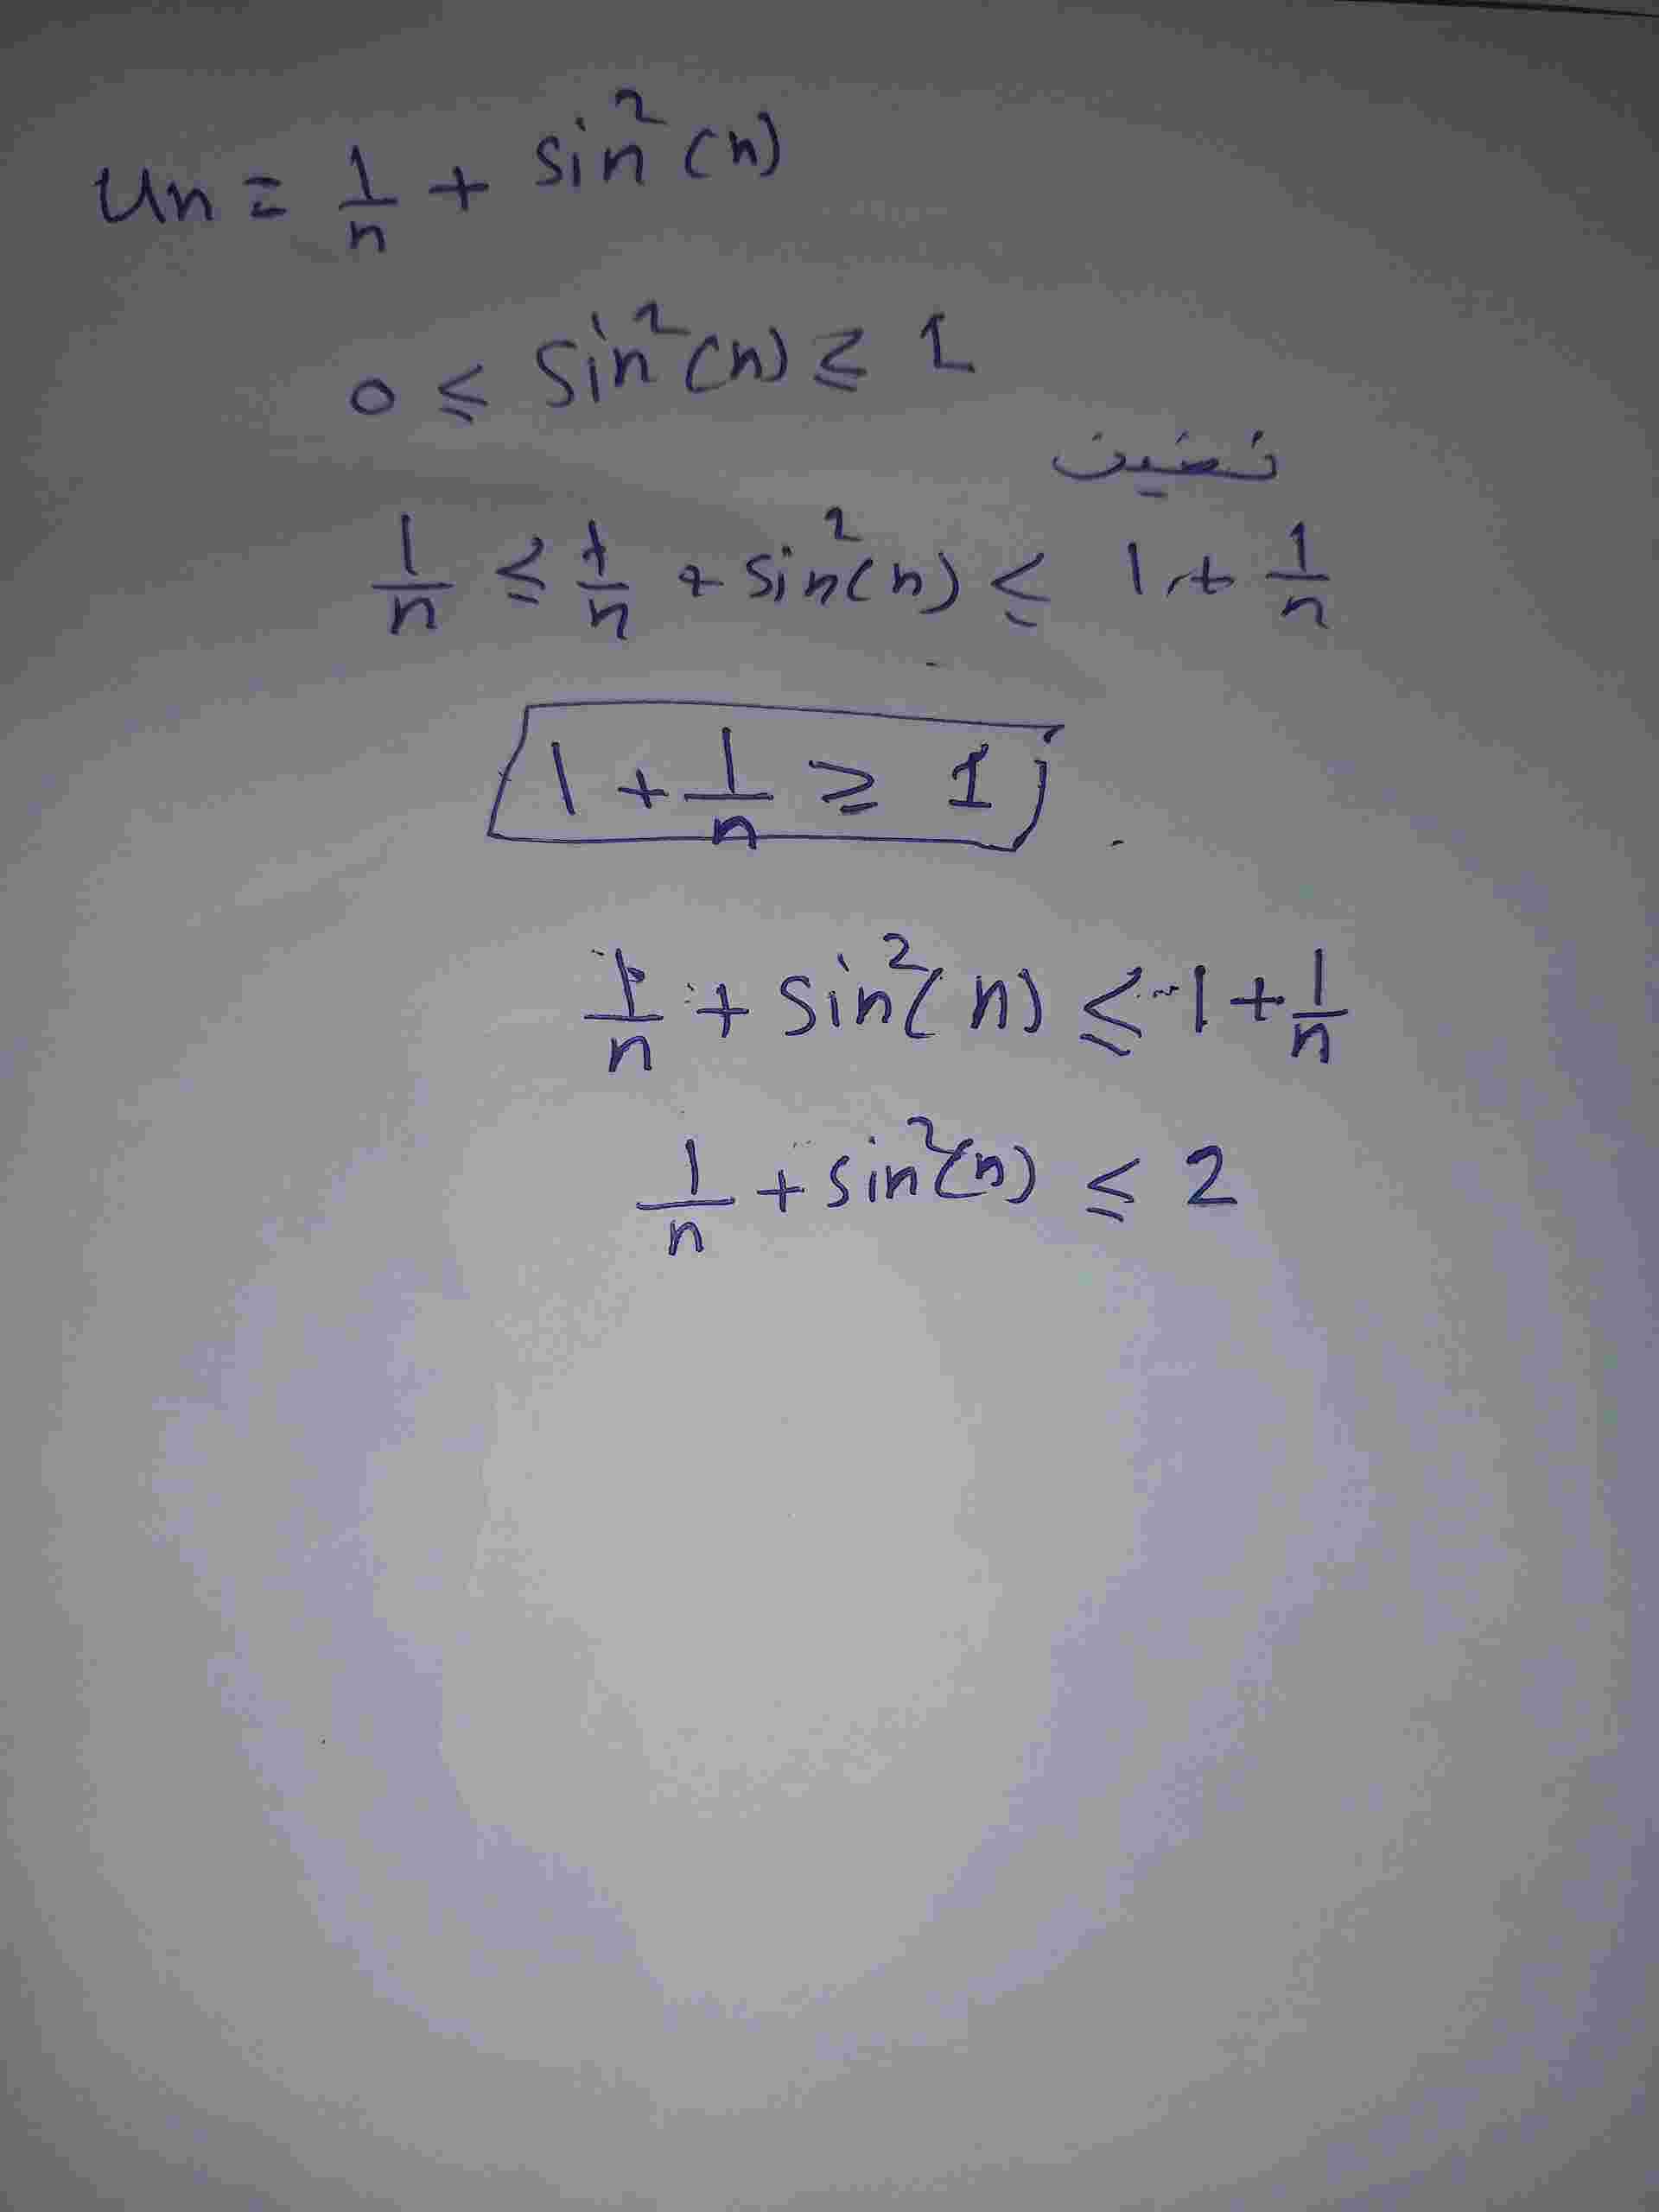 Un = 1/n + sin²(n)
0 ≤ Sin²(n) ≤ 1
نضيف
1/n ≤ 1/n + sin²(n) ≤ 1 + 1/n
1 + 1/n ≥ 1
1/n + sin²(n) ≤ 1 + 1/n
1/n + sin²(n) ≤ 2